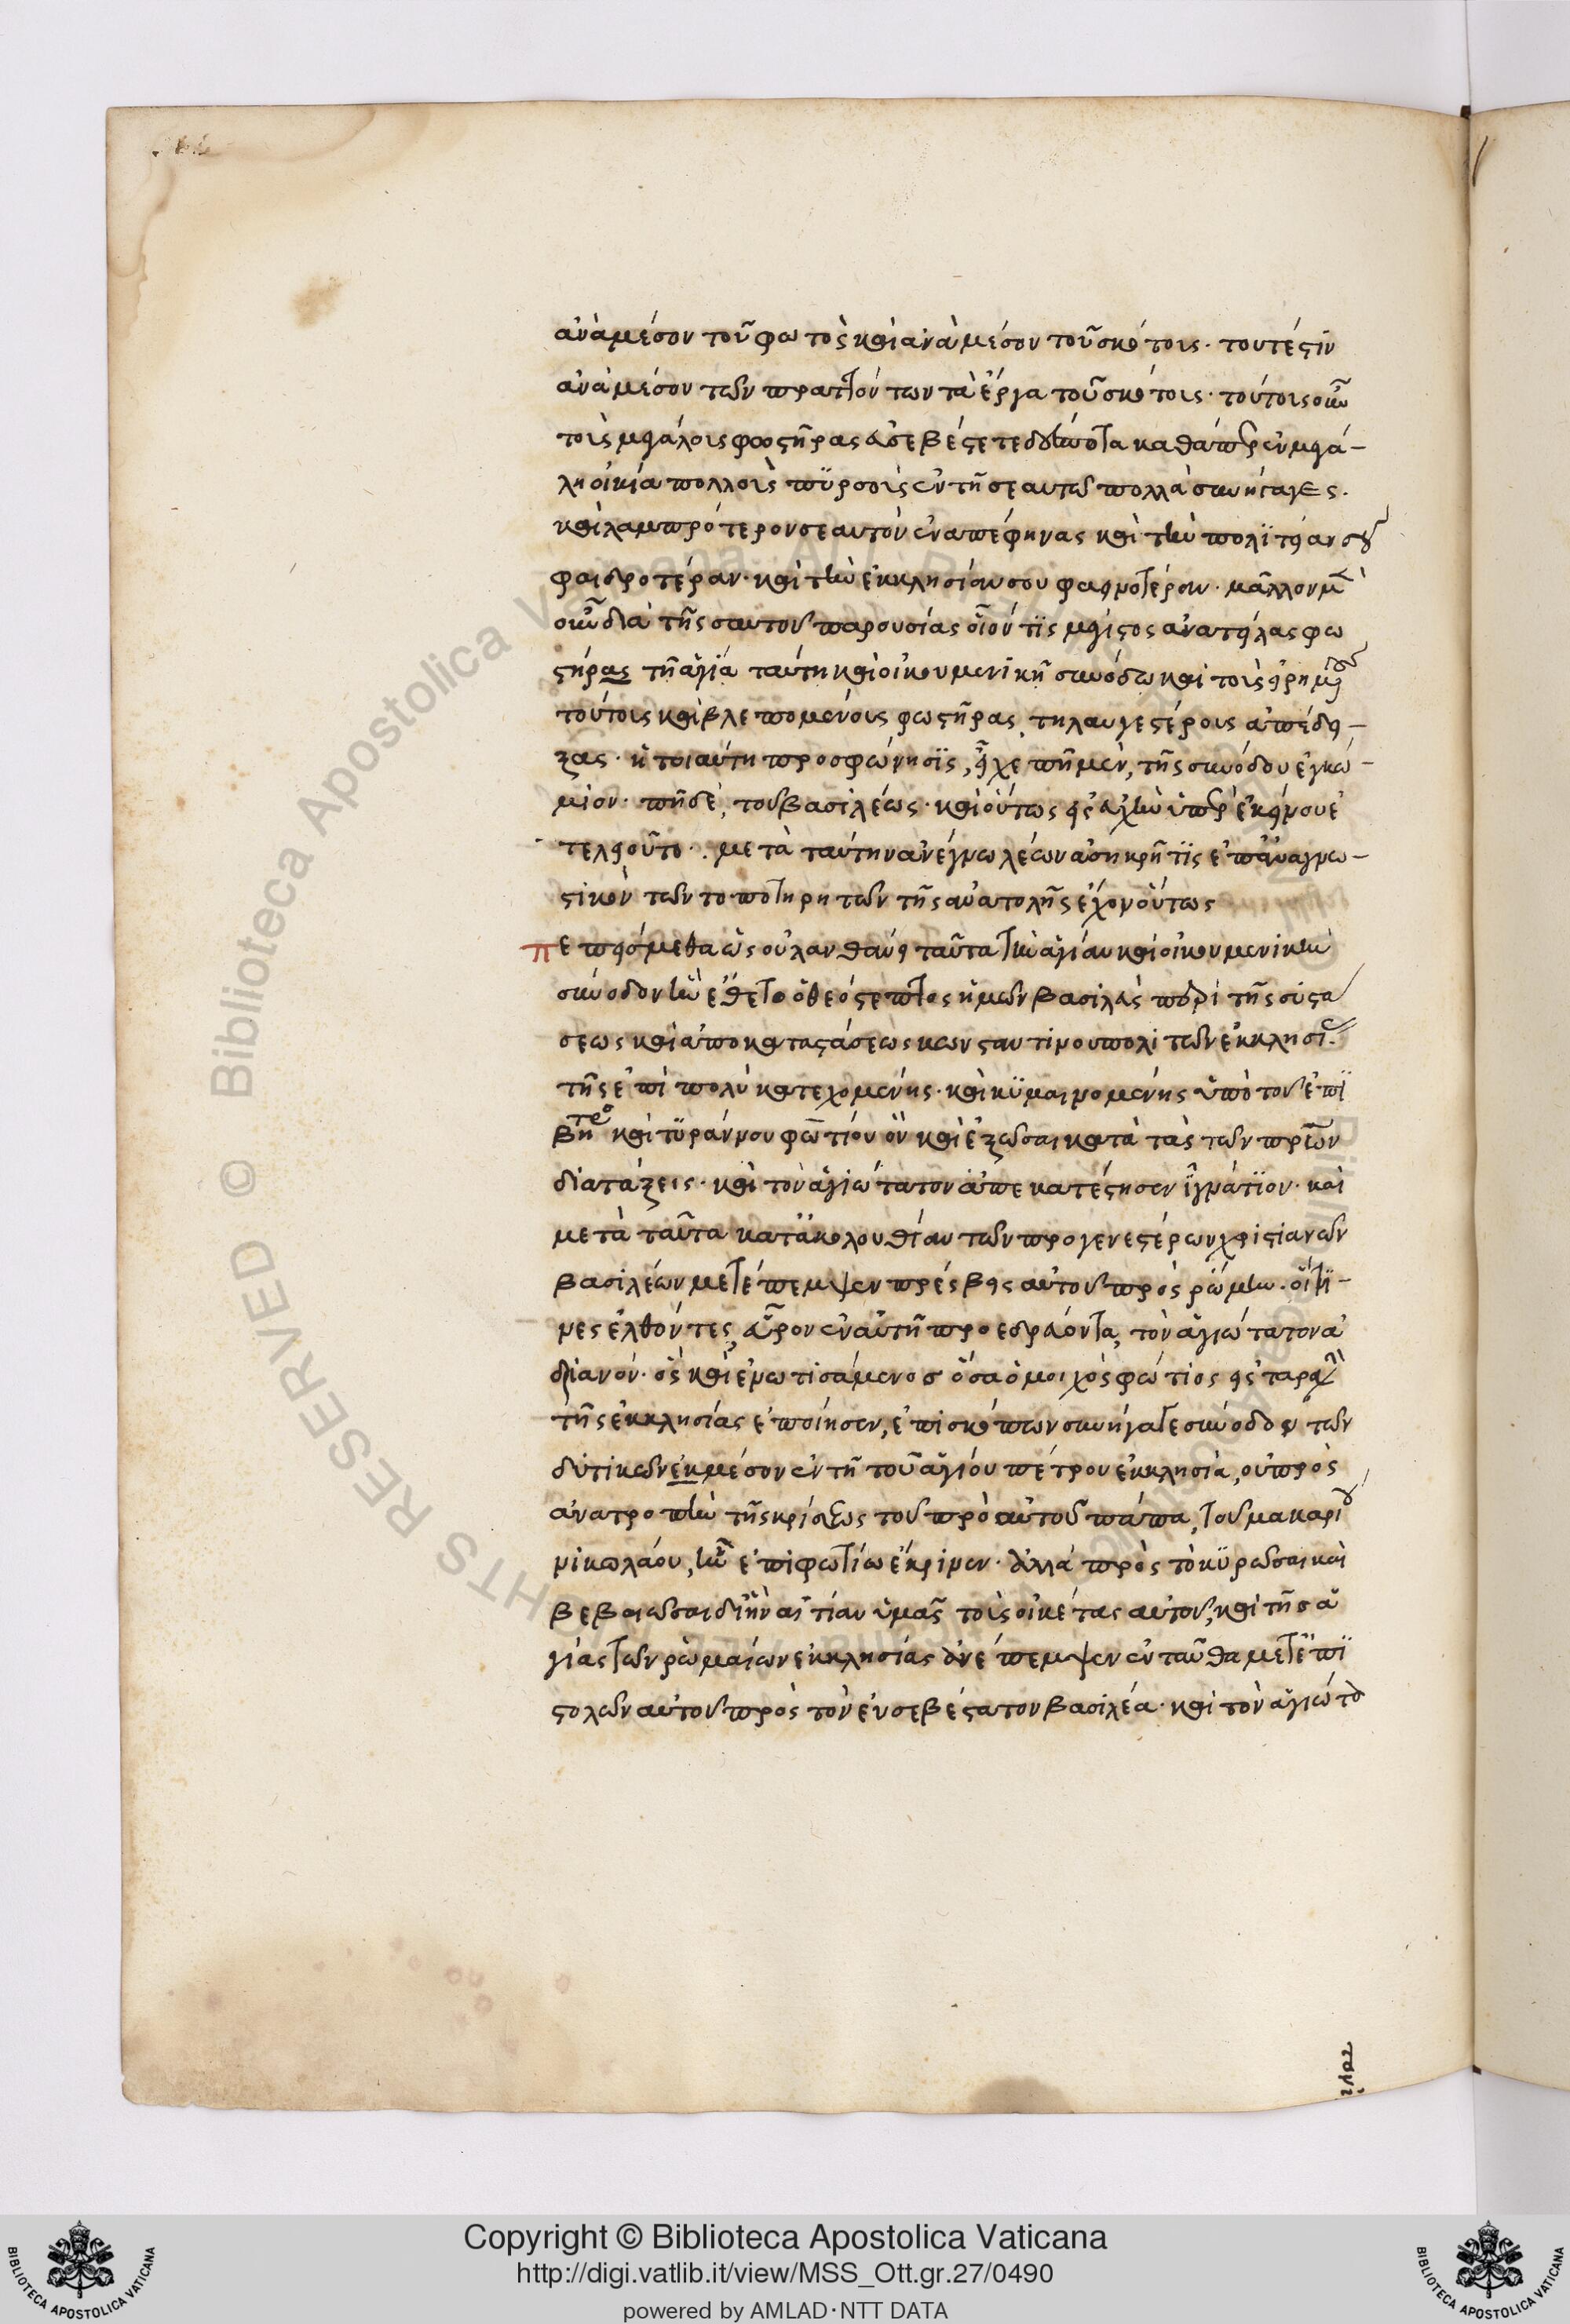 ἀνὰ μέσον τοῦ φωτὸς καὶ ἀνὰ μέσον τοῦ σκότους· τουτέστιν
ἀνὰ μέσον τῶν πραττόντων τὰ ἔργα τοῦ σκότους· τούτοις οὖν
τοῖς μεγάλοις φωστῆρας εὐσεβέστατε καθάπερ ἐν μεγά-
λη οἰκία πολλοῖς πυρσοῖς ἐν τῆ σεαυτοῦ πολλὰ συνήγαγες.
καὶ λαμπρότερον σεαυτὸν ἐναπέφηνας καὶ τὴν πολιτείαν σου
φαιδροτέραν· καὶ τὴν ἐκκλησίαν σου φαεινοτέραν· μᾶλλον
οὖν διὰ τῆς σαυτοῦ παρουσίας οἷόν τις μέγιστος ἀνατείλας φω
στήρας τῆ ἁγία ταύτη καὶ οἰκουμενικῆ συνόδω καὶ τοῖς εἰρημένοις
τούτοις καὶ βλεπομένοις φωστῆρας, τηλαυγεστέρους ἀπέδει-
ξας· ἡ τοιαύτη προσφώνησις, εἶχε πῆ μὲν, τῆς συνόδου ἐγκώ-
μιον· πῆ δὲ, τοῦ βασιλέως· καὶ οὕτως εἰς εὐχὴν ὑπὲρ ἐκείνου ἐ
τελειοῦτο· μετὰ ταύτην ἀνέγνω λέων ἀσηκρῆτις ἐπαναγνω-
στικὸν τῶν τοποτηρητῶν τῆς ἀνατολῆς ἔχον οὕτως
Πεποιθαμεθα ὡς οὐ λανθάνει ταῦτα τὴν ἁγίαν καὶ οἰκουμενικὴν
σύνοδον ἣν ἔθετο ὁ θεόστεπτος ἡμῶν βασιλεὺς περὶ τῆς συστά
σεως καὶ ἀποκαταστάσεως κωνσταντινουπολιτῶν ἐκκλησίας
τῆς ἐπὶ πολὺ κατεχομένης· καὶ κυμαινομένης ὑπὸ τοῦ ἐπι
βήτορος καὶ τυράννου φωτίου ὃν καὶ ἐξῶσαι κατὰ τὰς τῶν πατέρων
διατάξεις· καὶ τὸν ἁγιώτατον ἀπεκατέστησεν ἰγνάτιον· καὶ
μετὰ ταῦτα κατακολουθίαν τῶν προγενεστέρων χριστιανῶν
βασιλέων μετέπεμψεν πρέσβεις αὐτοῦ πρὸς ῥώμην· οἵτι-
νες ἐλθόντες, εὗρον ἐν αὐτῆ προεδρεύοντα, τὸν ἁγιώτατον ἀ
δριανόν· ὃς καὶ ἐνωτισάμενος ὅσα ὁ μοιχὸς φώτιος εἰς ταραχὴν
τῆς ἐκκλησίας ἐποίησεν, ἐπισκόπων συνήγαγε σύνοδον τῶν
δυτικῶν ἐκ μέσου ἐν τῆ τοῦ ἁγίου πέτρου ἐκκλησία, οὐ πρὸς
ἀνατροπὴν τῆς κρίσεως τοῦ πρὸ αὐτοῦ πάπα, τοῦ μακαρίου
νικολάου, ἣν ἐπὶ φωτίω ἔκρινεν· ἀλλὰ πρὸς τὸ κυρῶσαι καὶ
βεβαιῶσαι δι' ἣν αἰτίαν ἡμᾶς τοὺς οἰκέτας αὐτοῦ, καὶ τῆς ἁ
γίας τῶν ῥωμαίων ἐκκλησίας ἀνέπεμψεν ἐνταῦθα μετ' ἐπι
στολῶν αὐτοῦ πρὸς τὸν εὐσεβέστατον βασιλέα· καὶ τὸν ἁγιώτα
Biblioteca Apostolica Vaticana
Copyright © Biblioteca Apostolica Vaticana
http://digi.vatlib.it/view/MSS_Ott.gr.27/0490
powered by AMLAD·NTT DATA